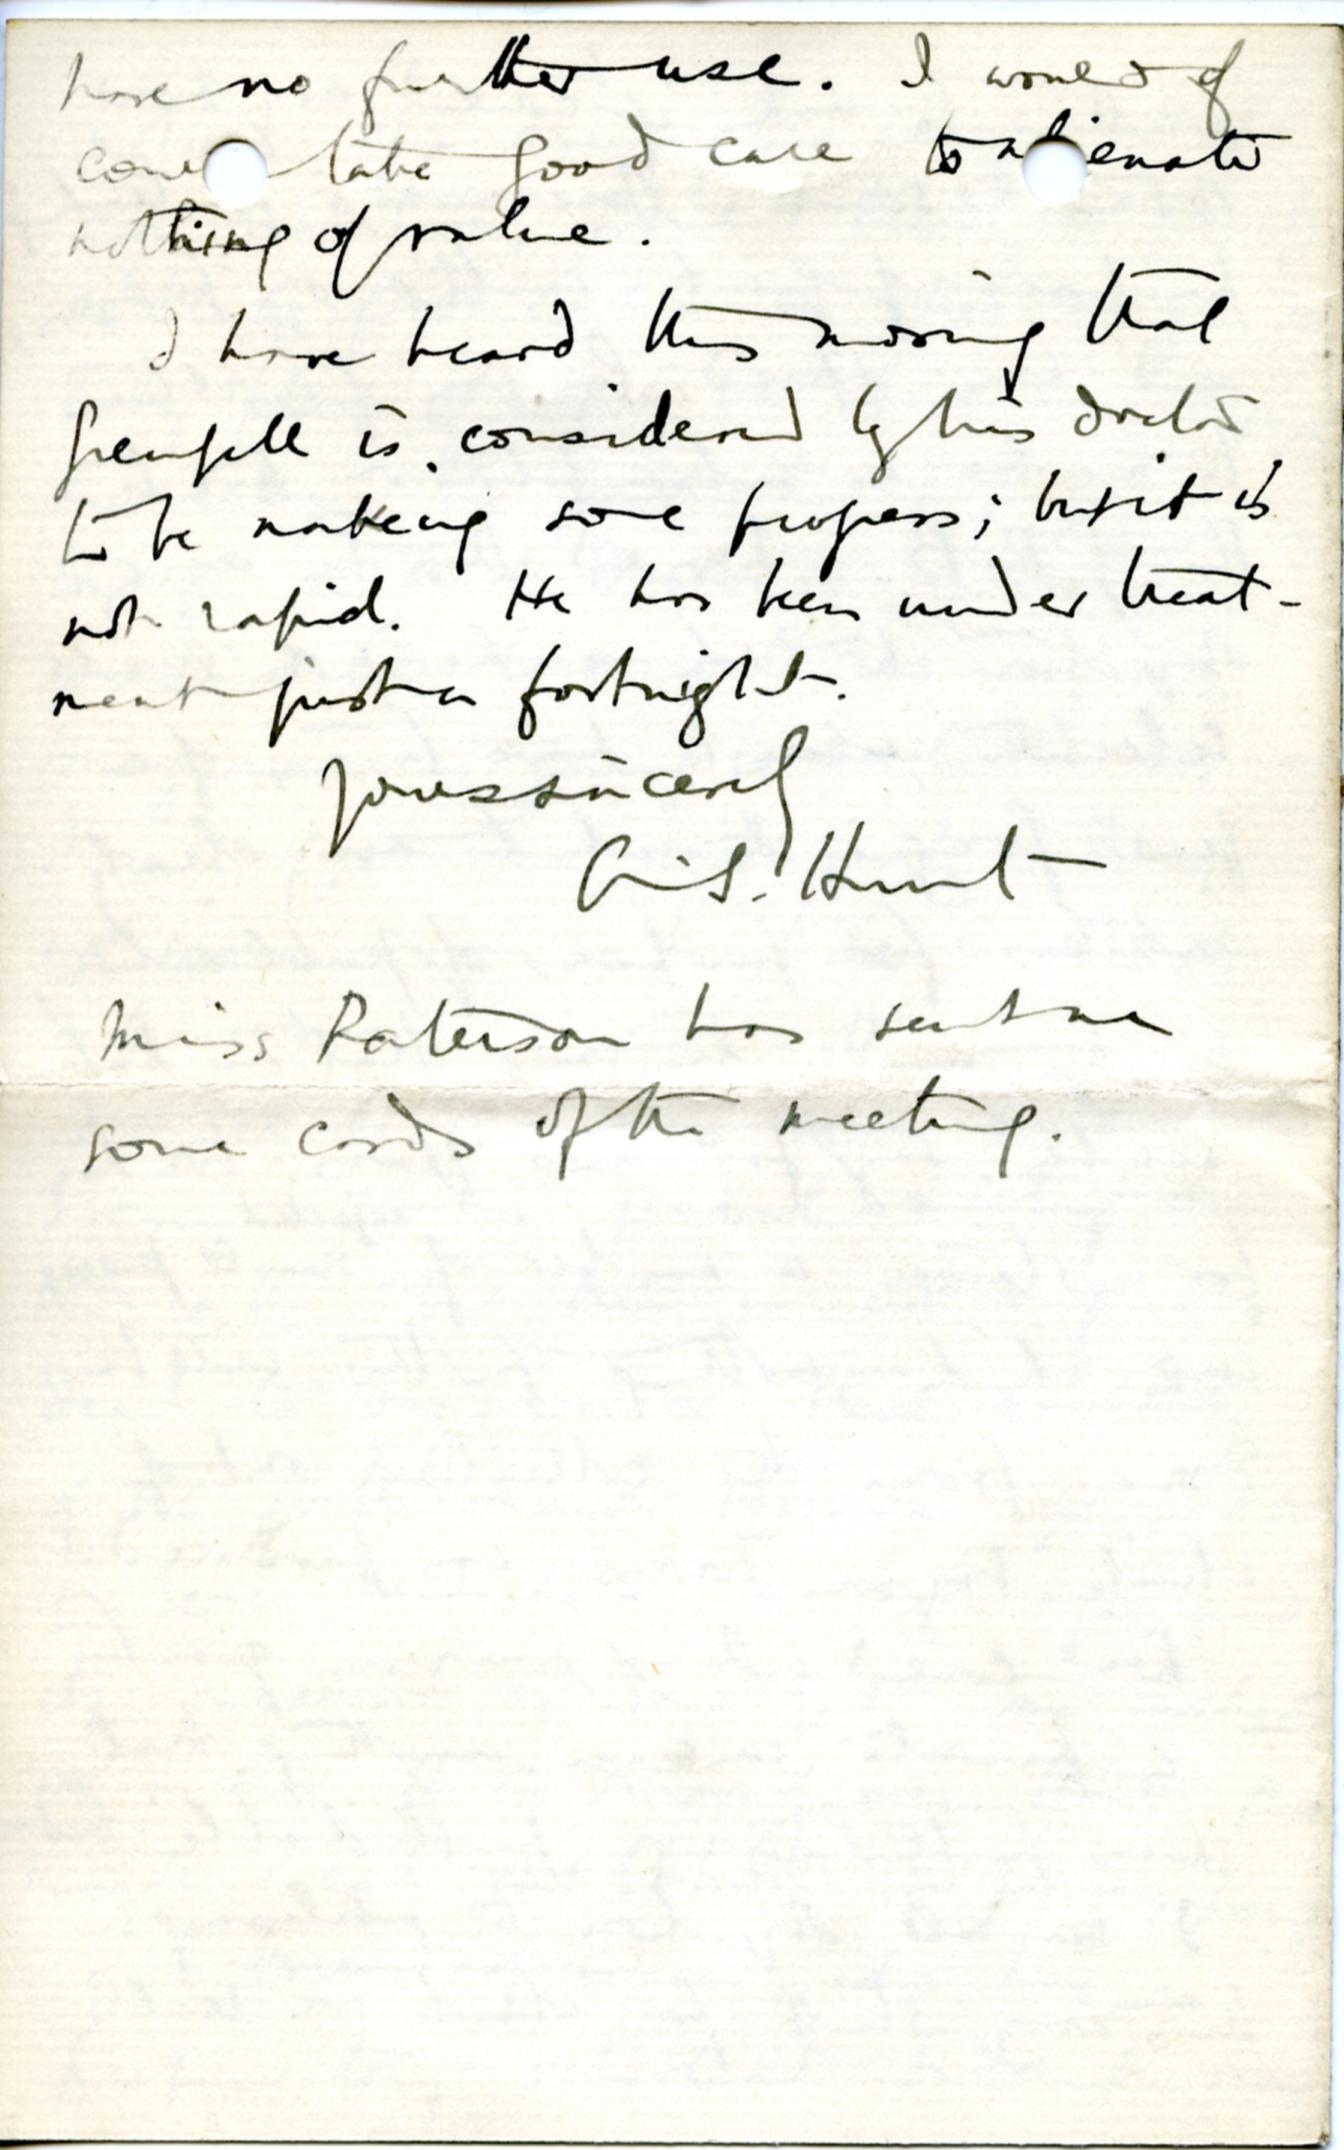 have no further use. I would of
course take good care to alienate
nothing of value.
I have heard this morning that
Grenfell is considered by his doctor
to be making some progress; but it is
not rapid. He has been under treat-
ment just a fortnight.
Yours sincerely
A. S. Hunt
Miss Paterson has sent me
some cards of the meeting.